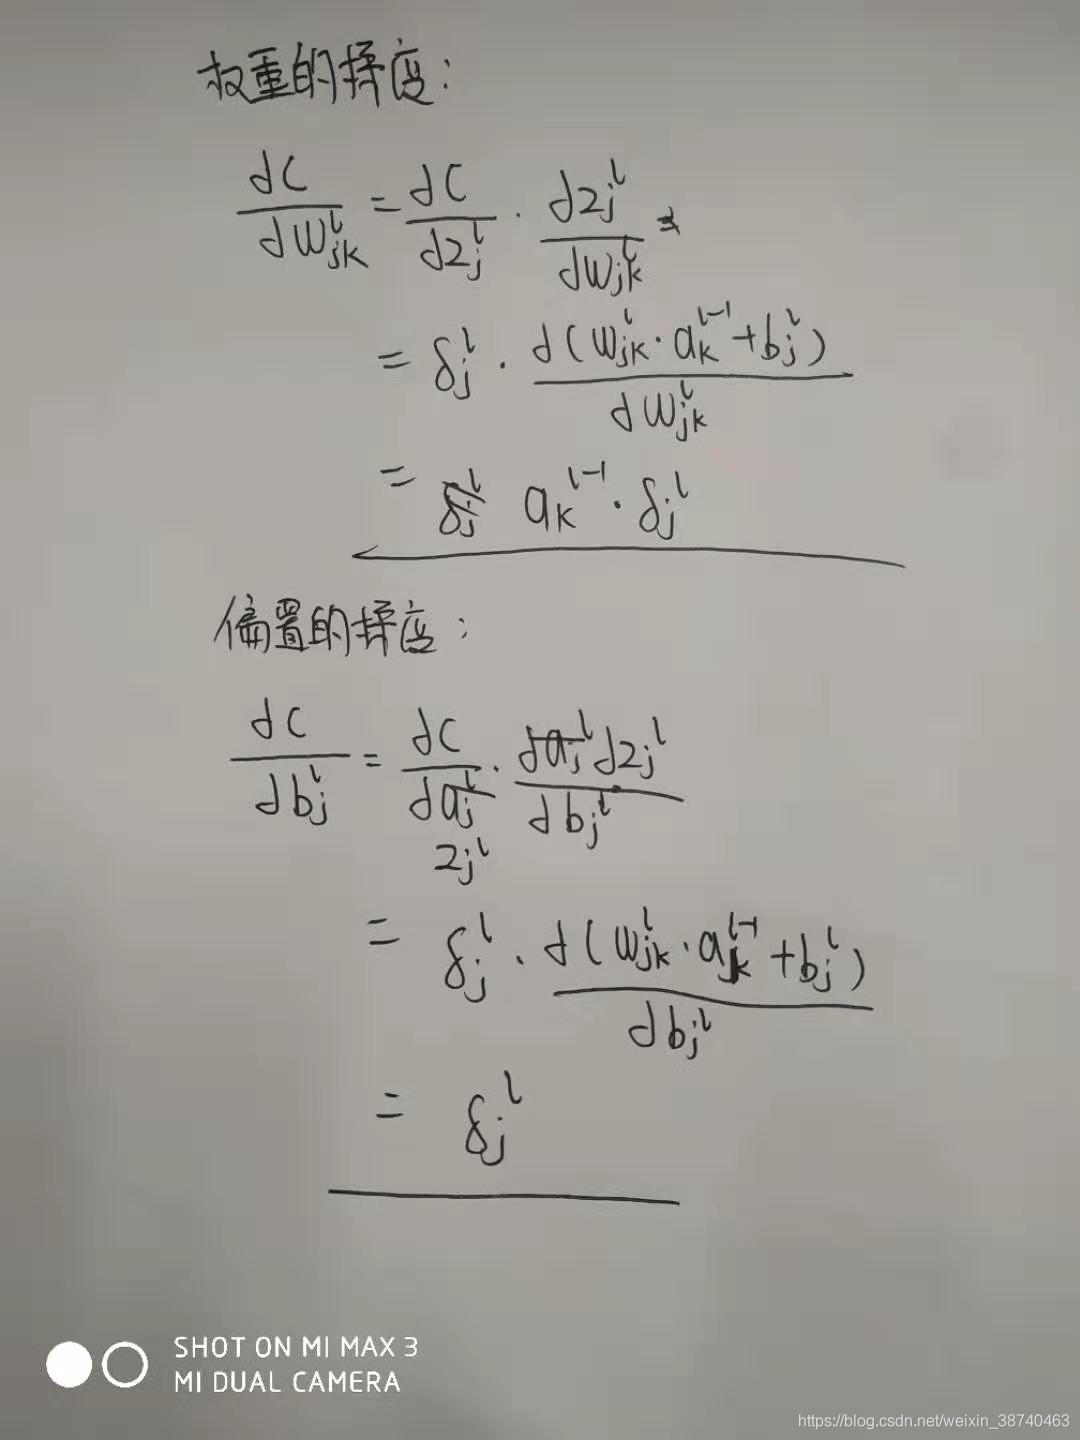 权重的择度:
dC/dW_{jk}^l = dC/d2_j^l · d2_j^l/dW_{jk}^l
= δ_j^l · d(W_{jk}^l · a_k^{l-1} + b_j^l)/dW_{jk}^l
= a_k^{l-1} · δ_j^l
偏置的择度:
dC/db_j^l = dC/d2_j^l · d2_j^l/db_j^l
= δ_j^l · d(W_{jk}^l · a_k^{l-1} + b_j^l)/db_j^l
= δ_j^l
SHOT ON MI MAX 3
MI DUAL CAMERA
https://blog.csdn.net/weixin_38740463